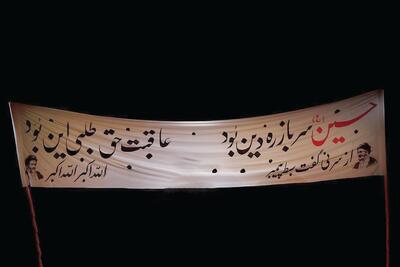 حسین (ع) سرباز ره دین بود عاقبت حق طلبی این بود
از سر نی گفت سبط پیمبر الله اکبر الله اکبر